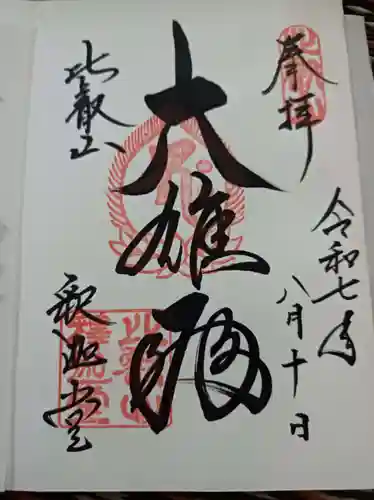 奉拝
令和七年
八月十日
大雄殿
比叡山
釈迦堂